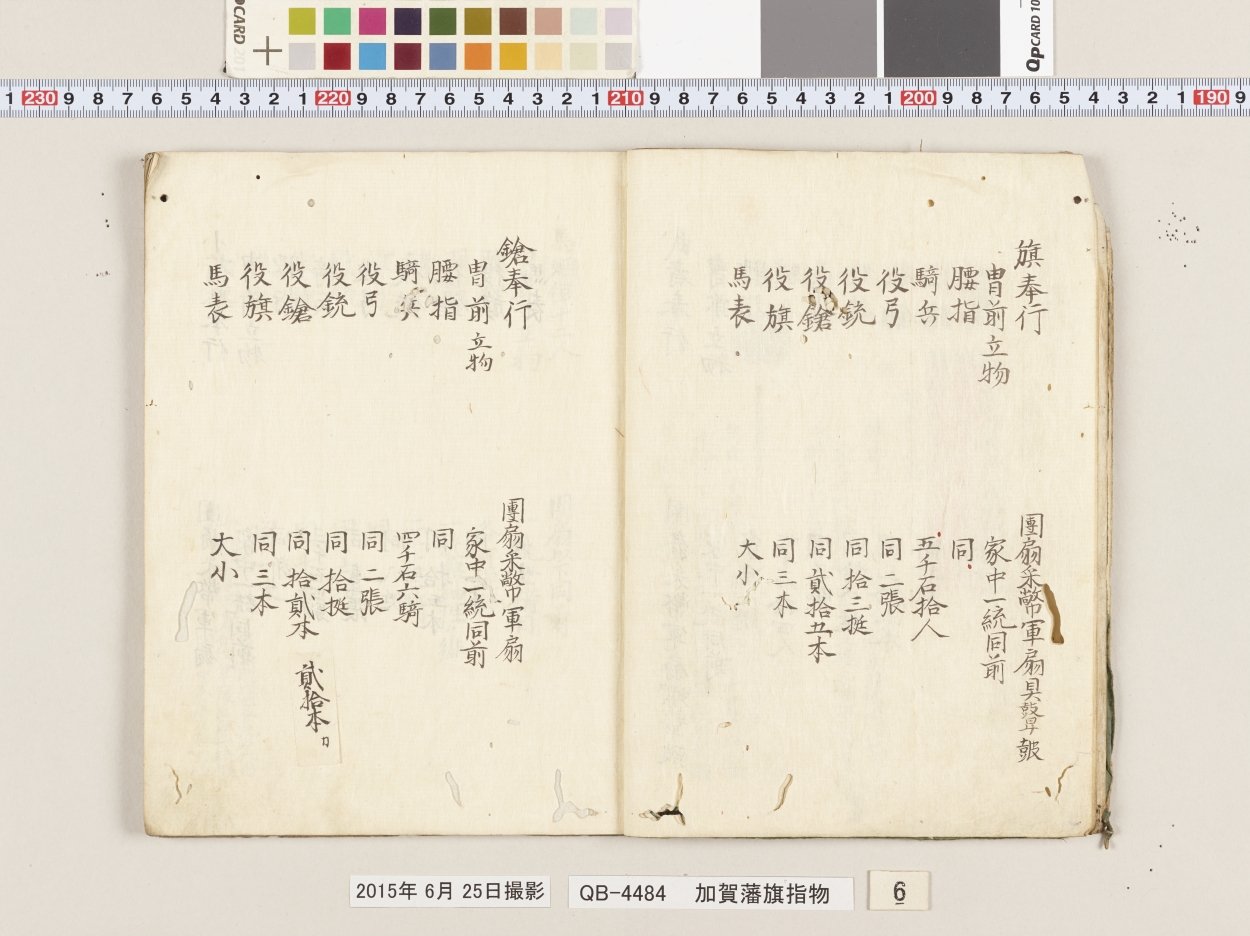 QPCARD 201
QPCARD 10
1 230 9 8 7 6 5 4 3 2 1 220 9 8 7 6 5 4 3 2 1 210 9 8 7 6 5 4 3 2 1 200 9 8 7 6 5 4 3 2 1 190 9
旗奉行 團扇采幣軍扇具
冑前立物 家中一統同前
腰指 同
騎兵 五千石拾人
役弓 同二張
役銃 同拾三挺
役鎗 同貳拾五本
役旗 同三本
馬表 大小
鎗奉行 團扇采幣軍扇
冑前立物 家中一統同前
腰指 同
騎兵 四千石六騎
役弓 同二張
役銃 同拾挺
役鎗 同拾貳本 貳拾本
役旗 同三本
馬表 大小
2015年 6月 25日撮影
QB-4484 加賀藩旗指物
6